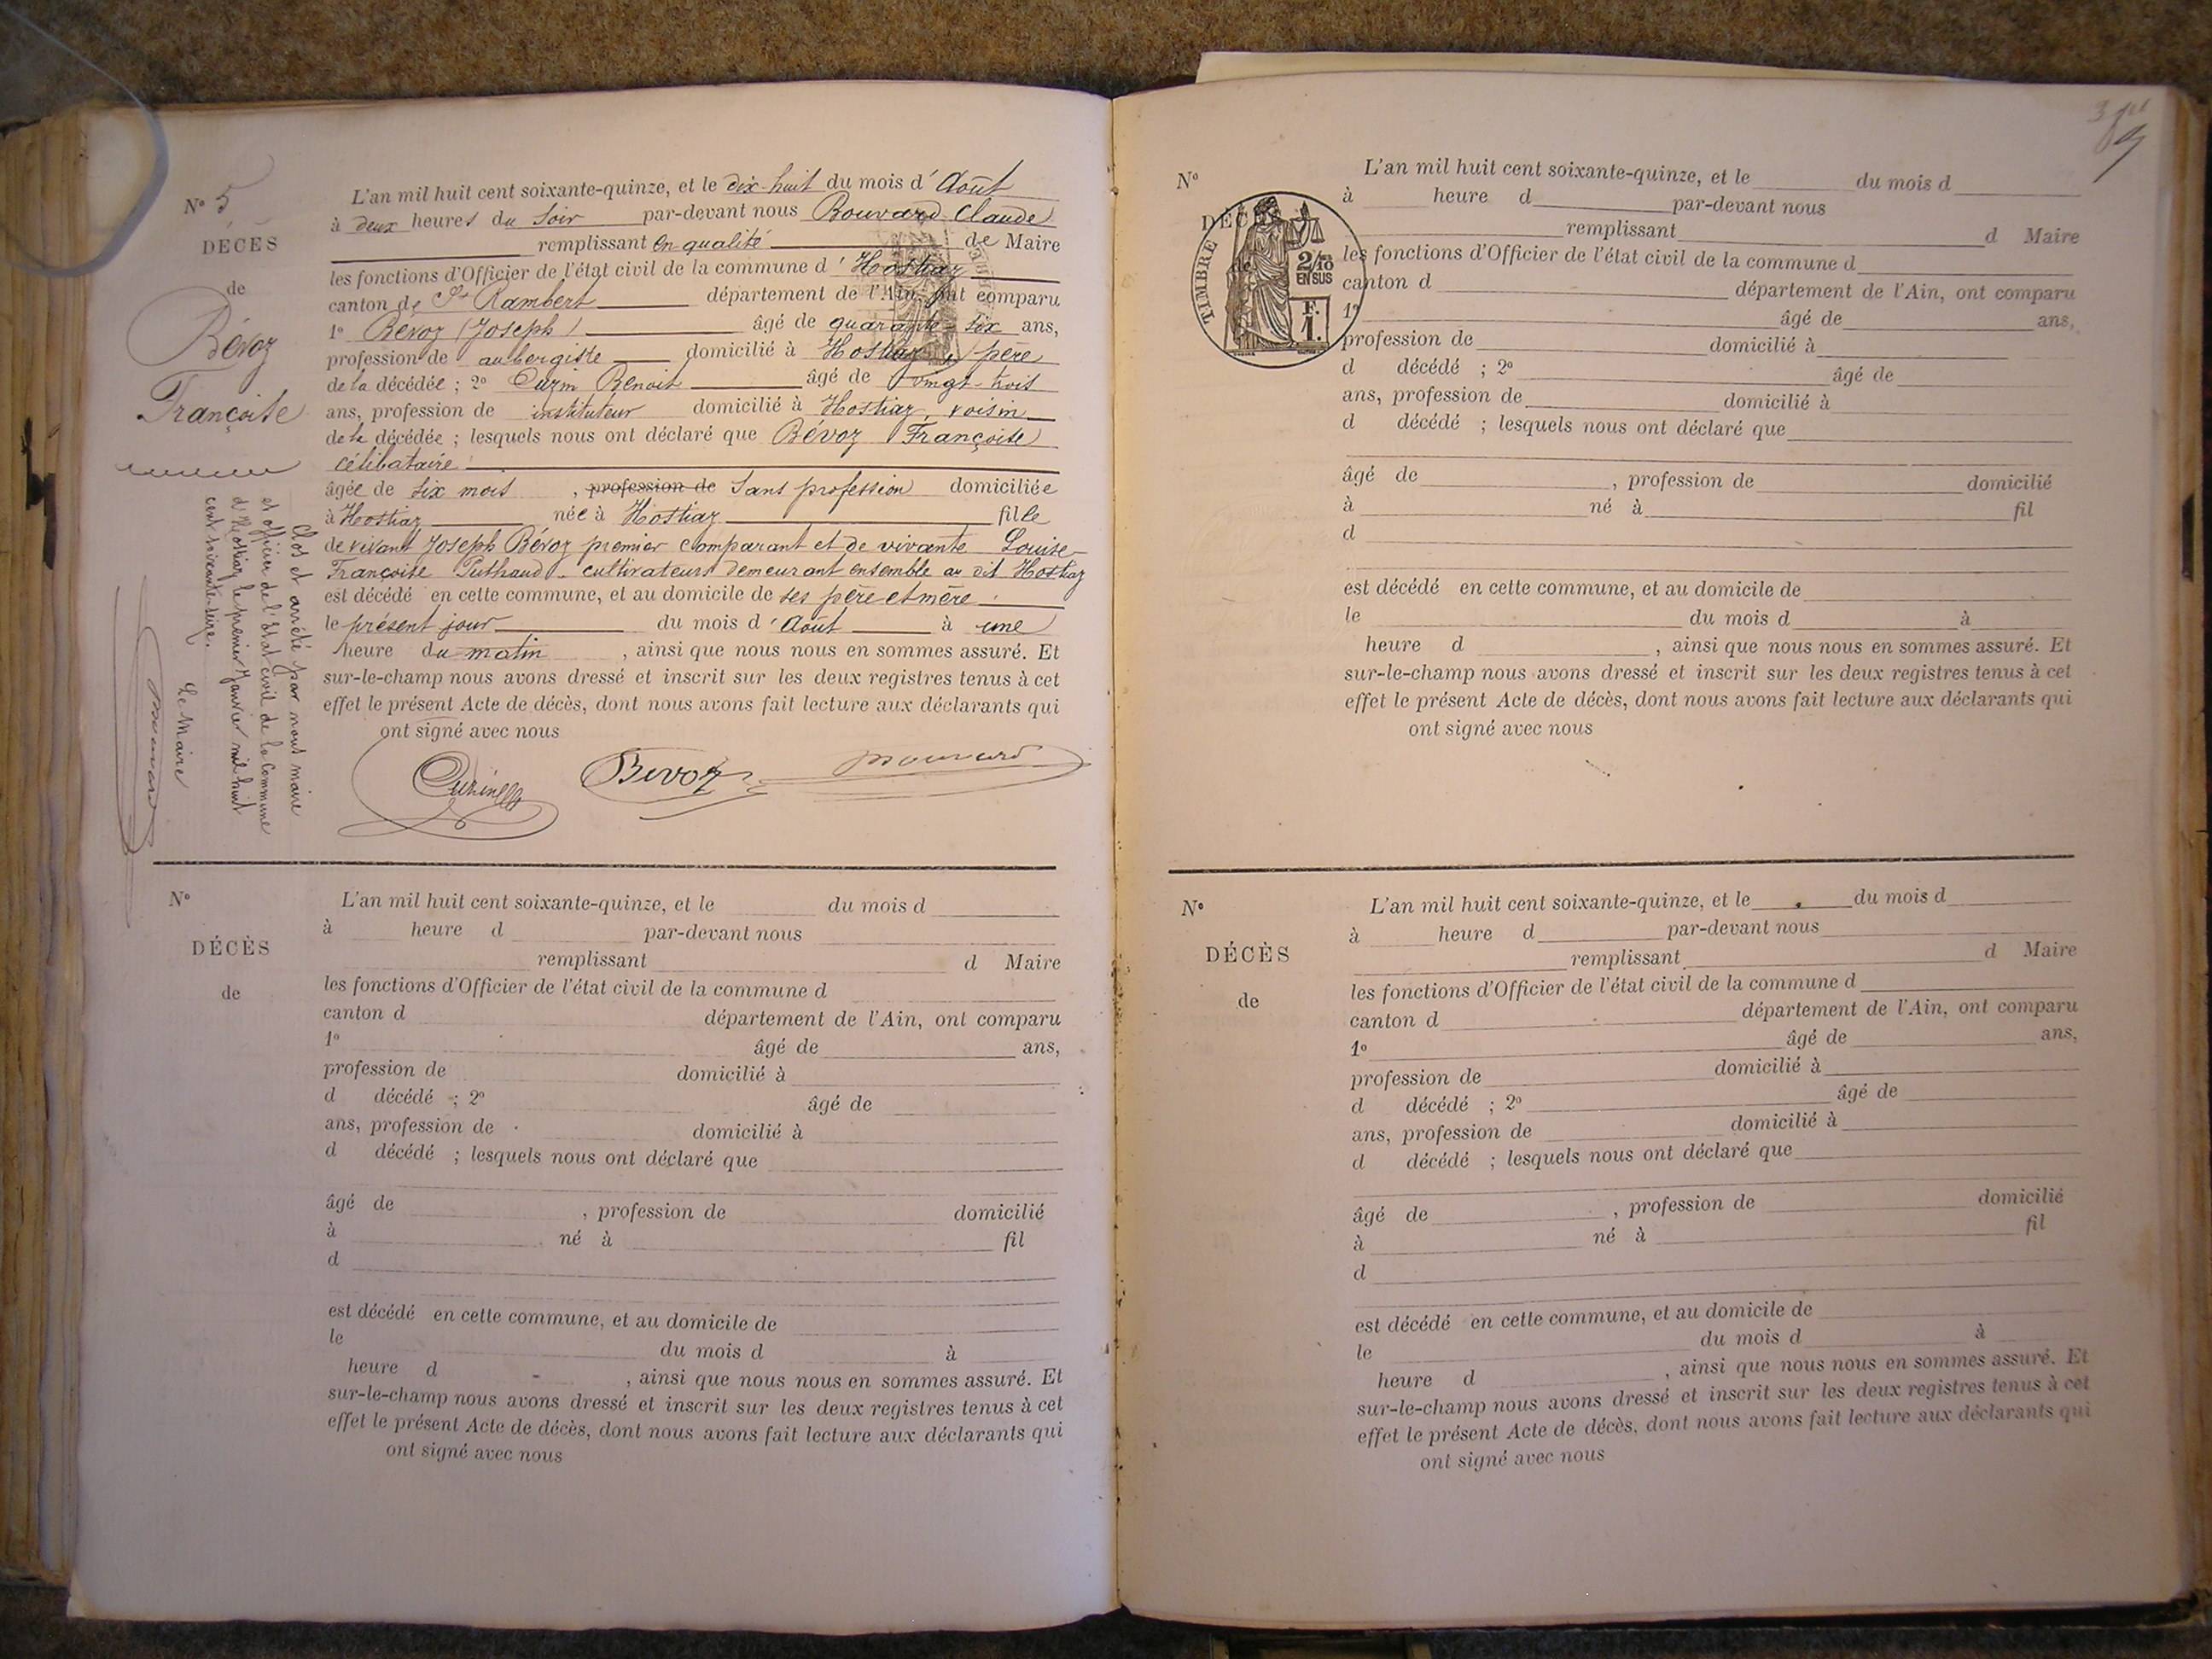 N° 5
DÉCÈS
de
Bévoz
Françoise
L'an mil huit cent soixante-quinze, et le dix-huit du mois d'Août
à deux heures du soir par-devant nous Bouvard Claude
remplissant en qualité de Maire
les fonctions d'Officier de l'état civil de la commune d'Hostiaz
canton de St Rambert département de l'Ain, ont comparu
1° Bévoz (Joseph) âgé de quarante-six ans,
profession de aubergiste domicilié à Hostiaz, père
de la décédée ; 2° Curin Benoit âgé de vingt-trois
ans, profession de instituteur domicilié à Hostiaz, voisin
de la décédée ; lesquels nous ont déclaré que Bévoz Françoise
célibataire
âgée de six mois , profession de sans profession domiciliée
à Hostiaz née à Hostiaz fille
de vivant Joseph Bévoz premier comparant et de vivante Louise-
Françoise Puthaud - cultivateurs demeurant ensemble au dit Hostiaz
est décédé en cette commune, et au domicile de ses père et mère.
le présent jour du mois d'Août à une
heure du matin , ainsi que nous nous en sommes assuré. Et
sur-le-champ nous avons dressé et inscrit sur les deux registres tenus à cet
effet le présent Acte de décès, dont nous avons fait lecture aux déclarants qui
ont signé avec nous
Bévoz Bouvard
Clos et arrêté par nous maire
et officier de l'État civil de la Commune
d'Hostiaz le premier Janvier mil huit
cent soixante-seize.
Le Maire
Bouvard
N°
DÉCÈS
de
L'an mil huit cent soixante-quinze, et le du mois d
à heure d par-devant nous
remplissant d Maire
les fonctions d'Officier de l'état civil de la commune d
canton d département de l'Ain, ont comparu
1° âgé de ans,
profession de domicilié à
d décédé ; 2° âgé de
ans, profession de domicilié à
d décédé ; lesquels nous ont déclaré que
âgé de , profession de domicilié
à né à fil
d
est décédé en cette commune, et au domicile de
le du mois d à
heure d , ainsi que nous nous en sommes assuré. Et
sur-le-champ nous avons dressé et inscrit sur les deux registres tenus à cet
effet le présent Acte de décès, dont nous avons fait lecture aux déclarants qui
ont signé avec nous
N°
DÉC
de
TIMBRE
2/10
EN SUS
F.
1.
L'an mil huit cent soixante-quinze, et le du mois d
à heure d par-devant nous
remplissant d Maire
les fonctions d'Officier de l'état civil de la commune d
canton d département de l'Ain, ont comparu
1° âgé de ans,
profession de domicilié à
d décédé ; 2° âgé de
ans, profession de domicilié à
d décédé ; lesquels nous ont déclaré que
âgé de , profession de domicilié
à né à fil
d
est décédé en cette commune, et au domicile de
le du mois d à
heure d , ainsi que nous nous en sommes assuré. Et
sur-le-champ nous avons dressé et inscrit sur les deux registres tenus à cet
effet le présent Acte de décès, dont nous avons fait lecture aux déclarants qui
ont signé avec nous
N°
DÉCÈS
de
L'an mil huit cent soixante-quinze, et le du mois d
à heure d par-devant nous
remplissant d Maire
les fonctions d'Officier de l'état civil de la commune d
canton d département de l'Ain, ont comparu
1° âgé de ans,
profession de domicilié à
d décédé ; 2° âgé de
ans, profession de domicilié à
d décédé ; lesquels nous ont déclaré que
âgé de , profession de domicilié
à né à fil
d
est décédé en cette commune, et au domicile de
le du mois d à
heure d , ainsi que nous nous en sommes assuré. Et
sur-le-champ nous avons dressé et inscrit sur les deux registres tenus à cet
effet le présent Acte de décès, dont nous avons fait lecture aux déclarants qui
ont signé avec nous